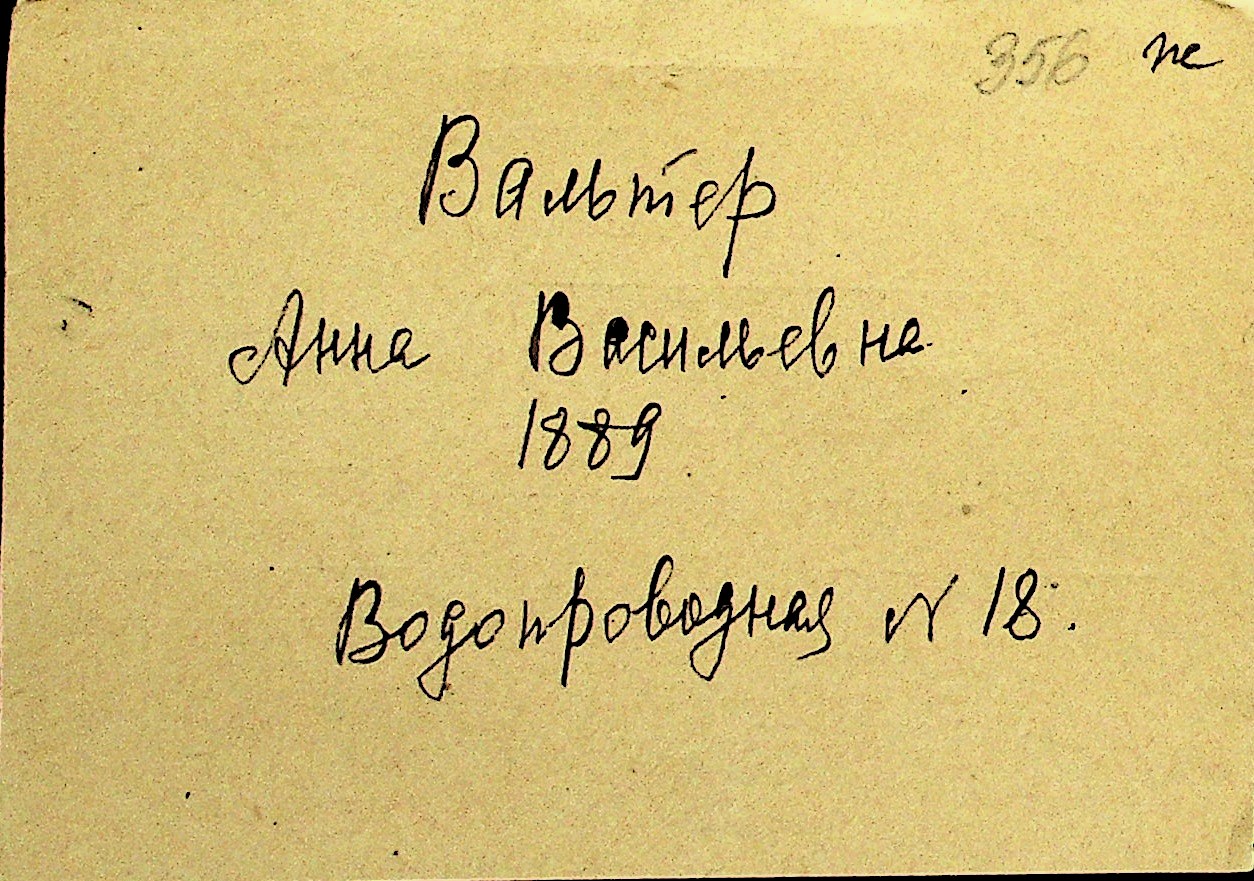 356
Вальтер
Анна Васильевна
1889
Водопроводная N 18.